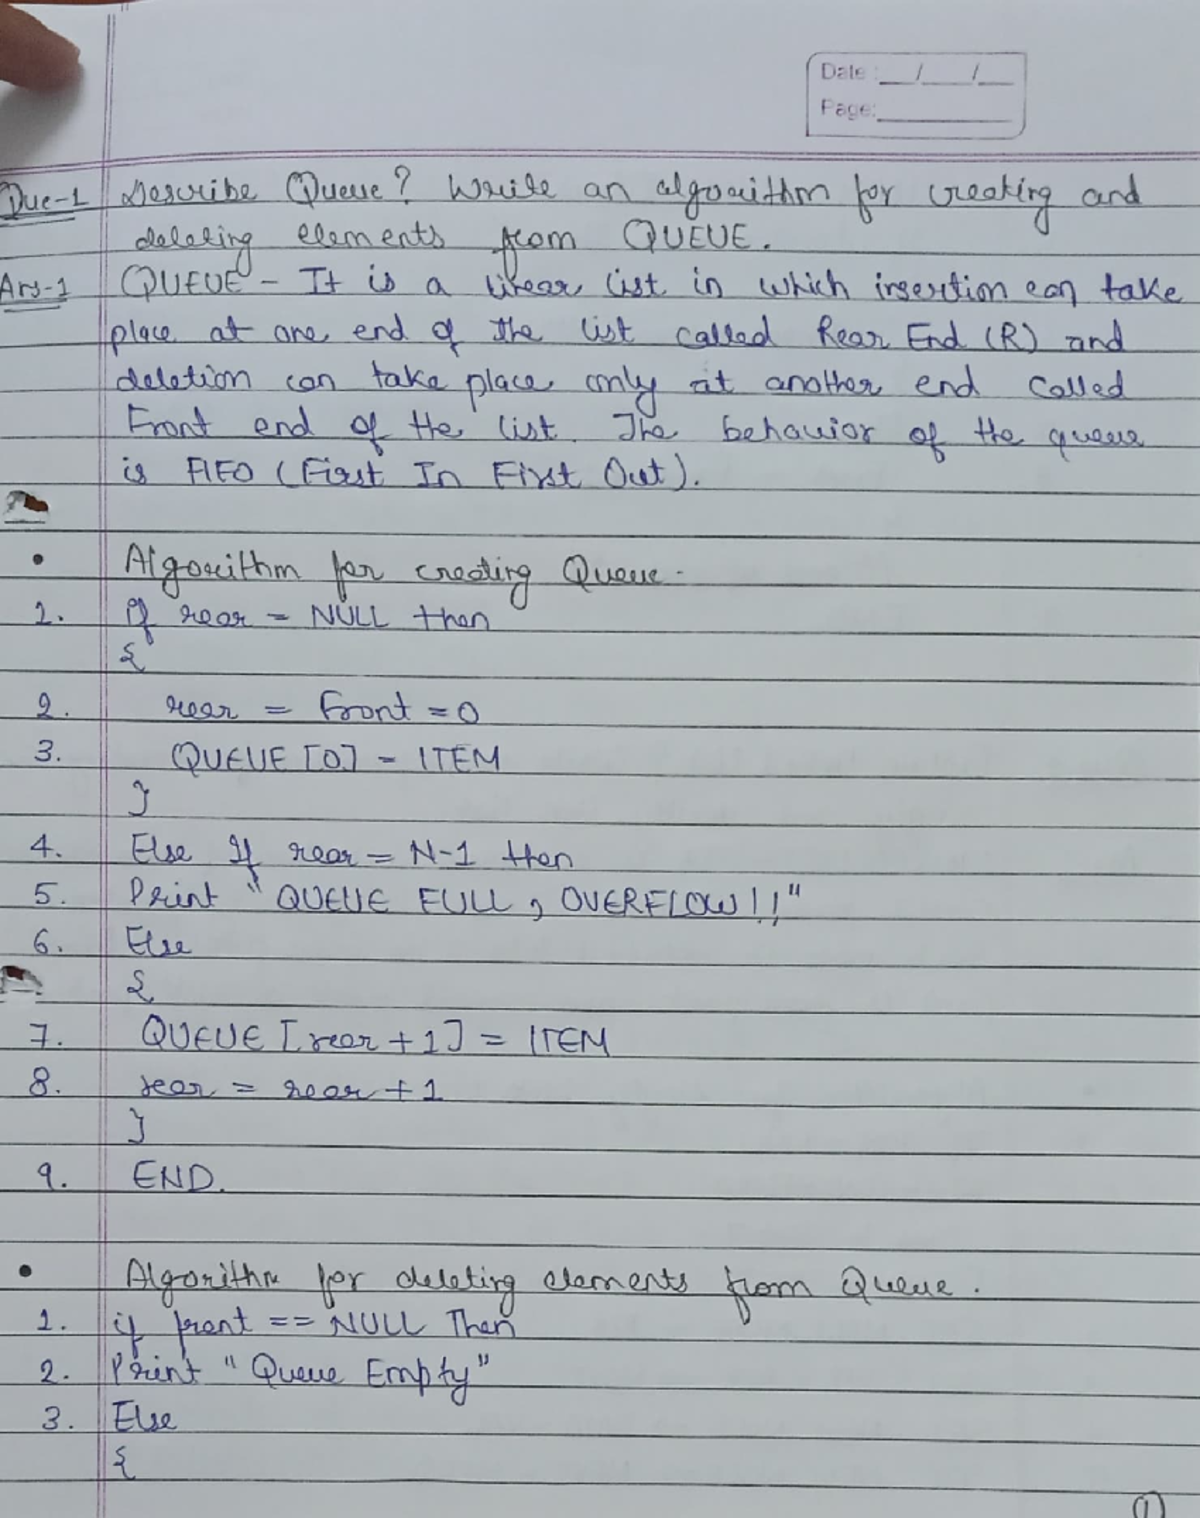 Date : __/__/__
Page: ______
Que-1 Describe Queue? Write an algorithm for creating and
deleting elements from QUEUE.
Ans-1 QUEUE - It is a linear list in which insertion can take
place at one end of the list called Rear End (R) and
deletion can take place only at another end called
Front end of the list. The behavior of the queue
is FIFO (First In First Out).
• Algorithm for creating Queue -
1. If rear = NULL then
{
2. rear = Front = 0
3. QUEUE [0] = ITEM
}
4. Else If rear = N-1 then
5. Print "QUEUE FULL, OVERFLOW!!"
6. Else
{
7. QUEUE [rear + 1] = ITEM
8. rear = rear + 1
}
9. END.
• Algorithm for deleting elements from Queue.
1. if front == NULL Then
2. Print "Queue Empty"
3. Else
{
1